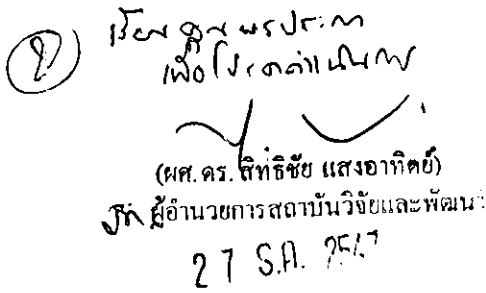 ② เรียน คุณ พรประภา
เพื่อโปรดดำเนินการ
(ผศ.ดร.สิทธิชัย แสงอาทิตย์)
ผู้อำนวยการสถาบันวิจัยและพัฒนา
27 ธ.ค. 2547